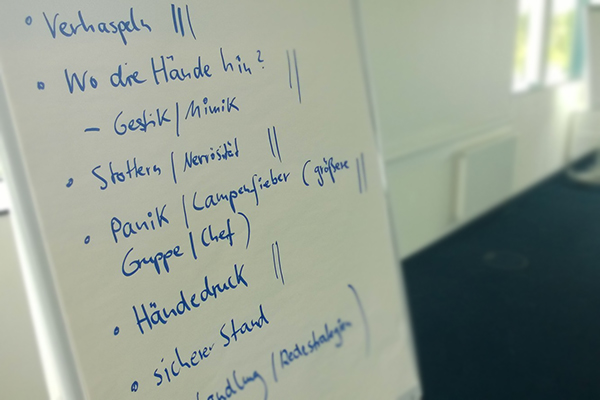 • Verhaspeln |||
• Wo die Hände hin? ||
– Gestik/Mimik
• Stottern/Nervösität ||
• Panik/Lampenfieber (größere ||
Gruppe/Chef)
• Händedruck ||
• sicherer Stand
andlung/Redestrategien)